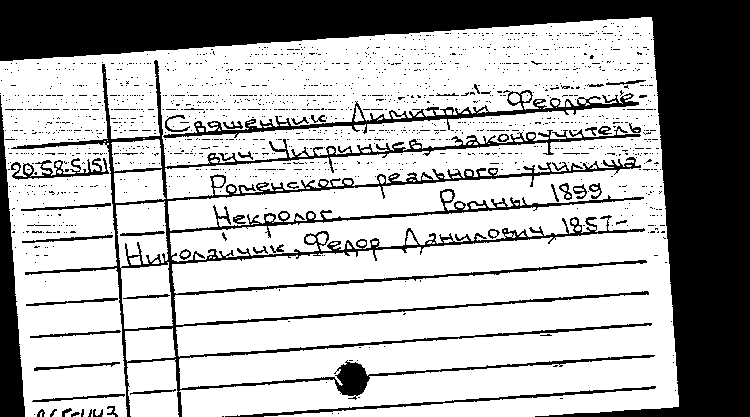 Священник Димитрий Феодосие-
20.58.5.151 вич Чигринцев, законоучитель
Роменского реального училища.
Некролог. Ромны, 1899.
Николайчик, Федор Данилович, 1857-